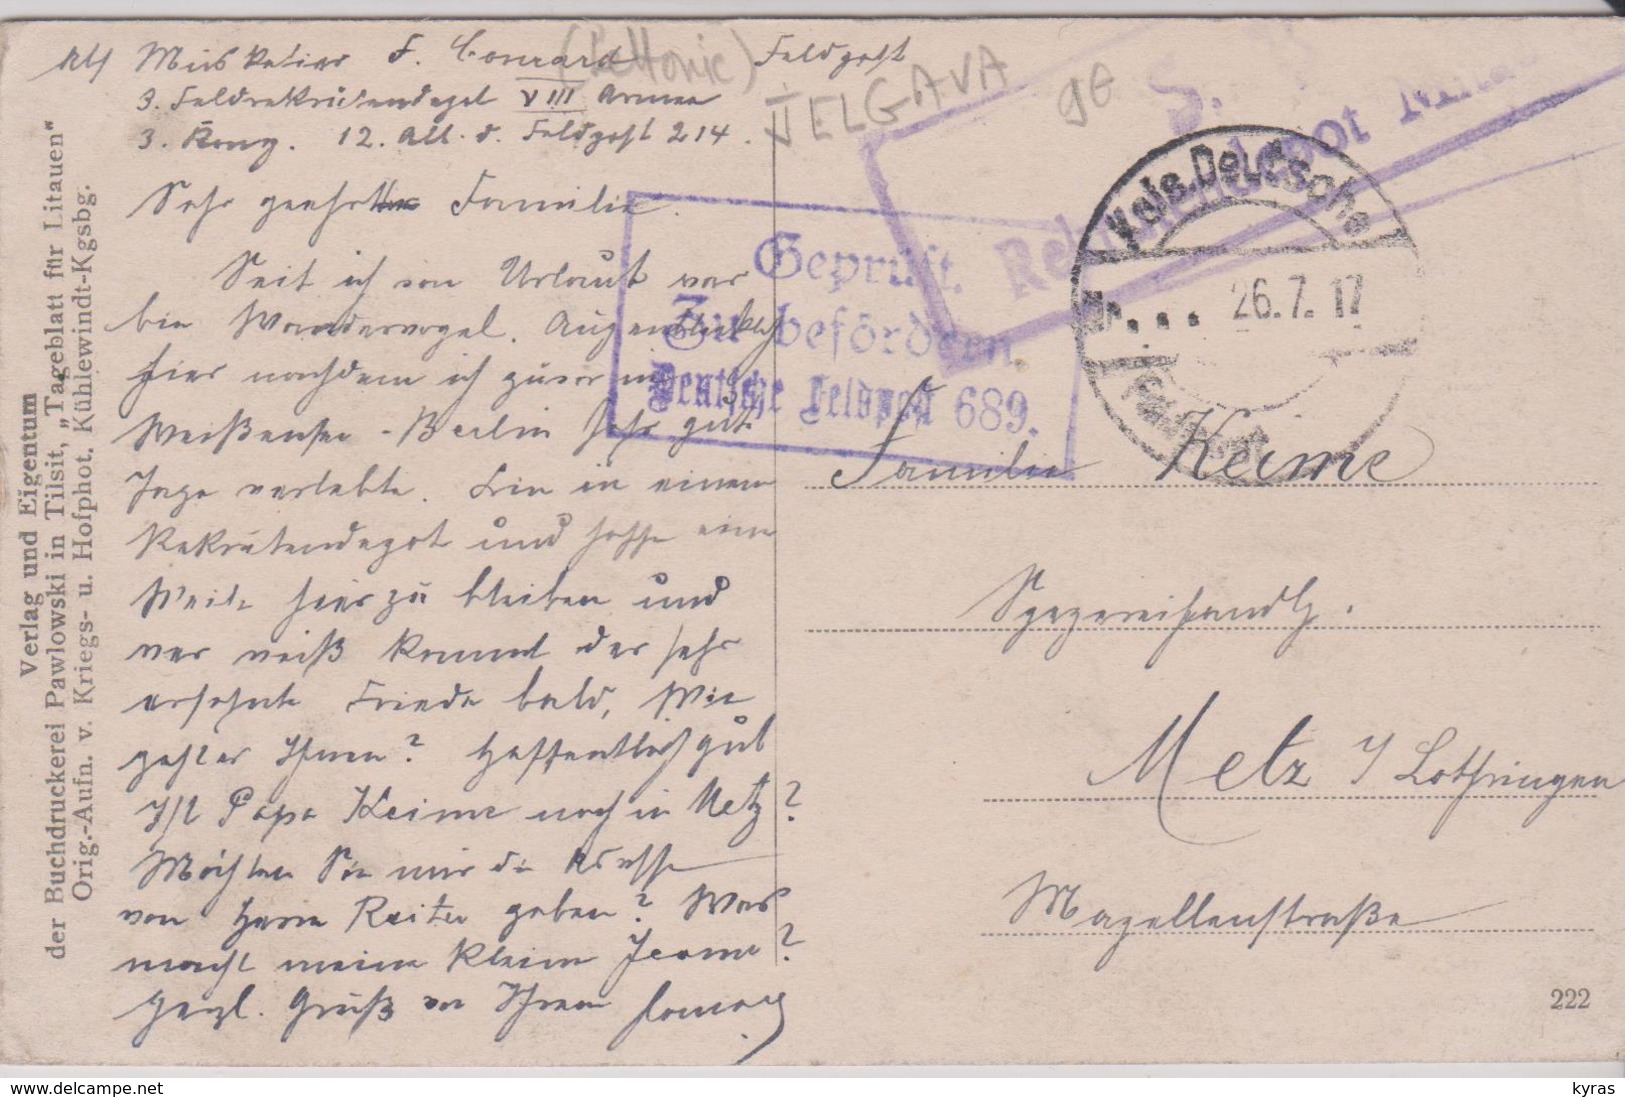 Abs Musketier F. Conrard Feldpost
3. Feldrekrutendepot VIII Armee
3. Komp. 12. Abt. d. Feldpost 214.
(Lettonie)
JELGAVA
Geprüft.
Zu befördern.
Deutsche Feldpost 689.
S.
Rekrutendepot
Kais. Deutsche
Nr. ... 26.7.17
Sehr geehrte Familie.
Seit ich von Urlaub war
bin Wandervogel. Augenblicklich
hier nachdem ich zuvor in
Weißensee-Berlin sehr gute
Tage verlebte. Bin in einem
Rekrutendepot und hoffe eine
Weile hier zu bleiben und
wer weiß kommt der sehr
ersehnte Friede bald, Wie
geht es Ihnen? Hoffentlich gut
Ist Papa Keime noch in Metz?
Möchten Sie mir die Adresse
von Herrn Reiter geben? Was
macht meine kleine Jeanne?
Herzl. Gruß von Ihrem Conrard
Familie Keime
Spezereihandlg.
Metz i/Lothringen
Magellenstraße
222
Verlag und Eigentum
der Buchdruckerei Pawlowski in Tilsit, „Tageblatt für Litauen"
Orig.-Aufn. v. Kriegs- u. Hofphot. Kühlewindt-Kgsbg.
delcampe.net
kyras